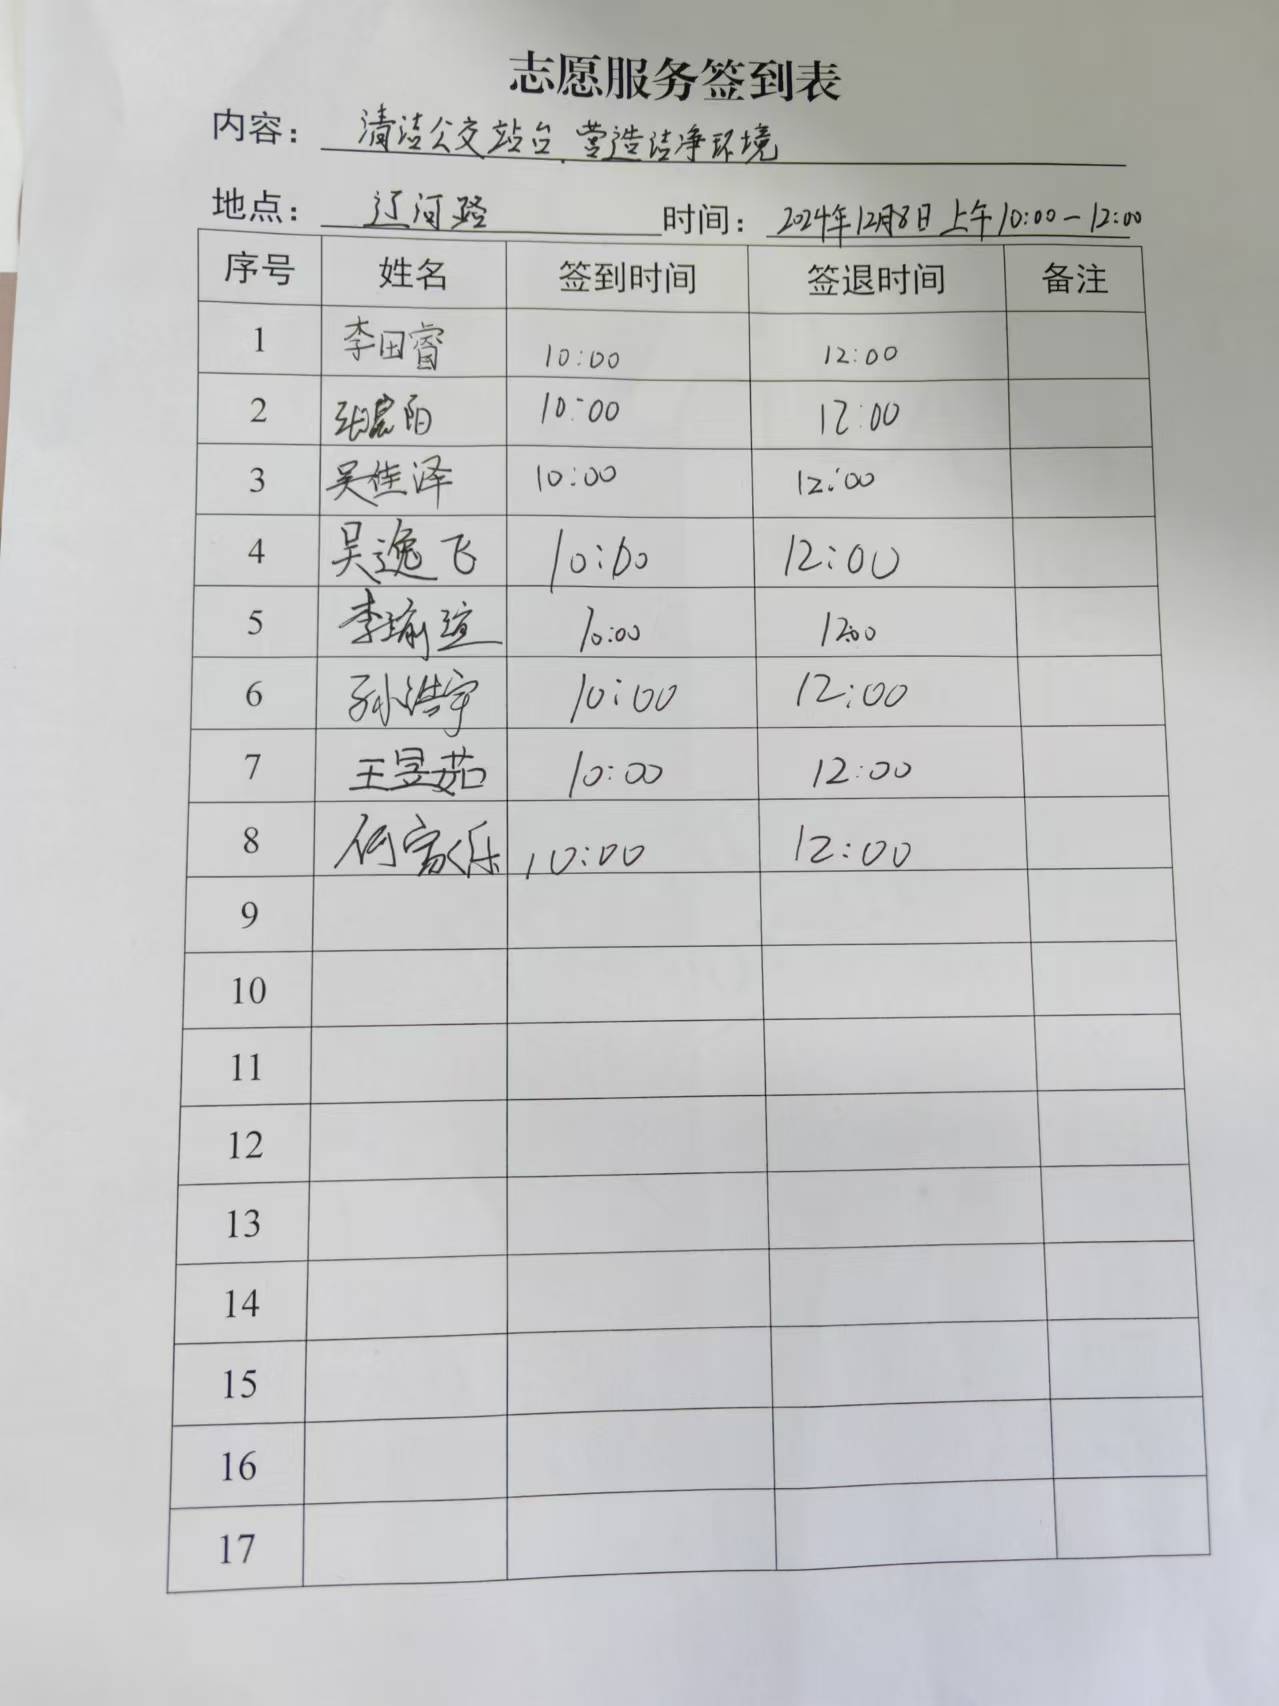 志愿服务签到表
内容：清洁公交站台，营造洁净环境
地点：辽河路 时间：2024年12月8日上午10:00-12:00
序号 姓名 签到时间 签退时间 备注
1 李田睿 10:00 12:00
2 张宸阳 10:00 12:00
3 吴佳泽 10:00 12:00
4 吴逸飞 10:00 12:00
5 李瑜瑄 10:00 12:00
6 孙浩宇 10:00 12:00
7 王昱茹 10:00 12:00
8 何家乐 10:00 12:00
9
10
11
12
13
14
15
16
17